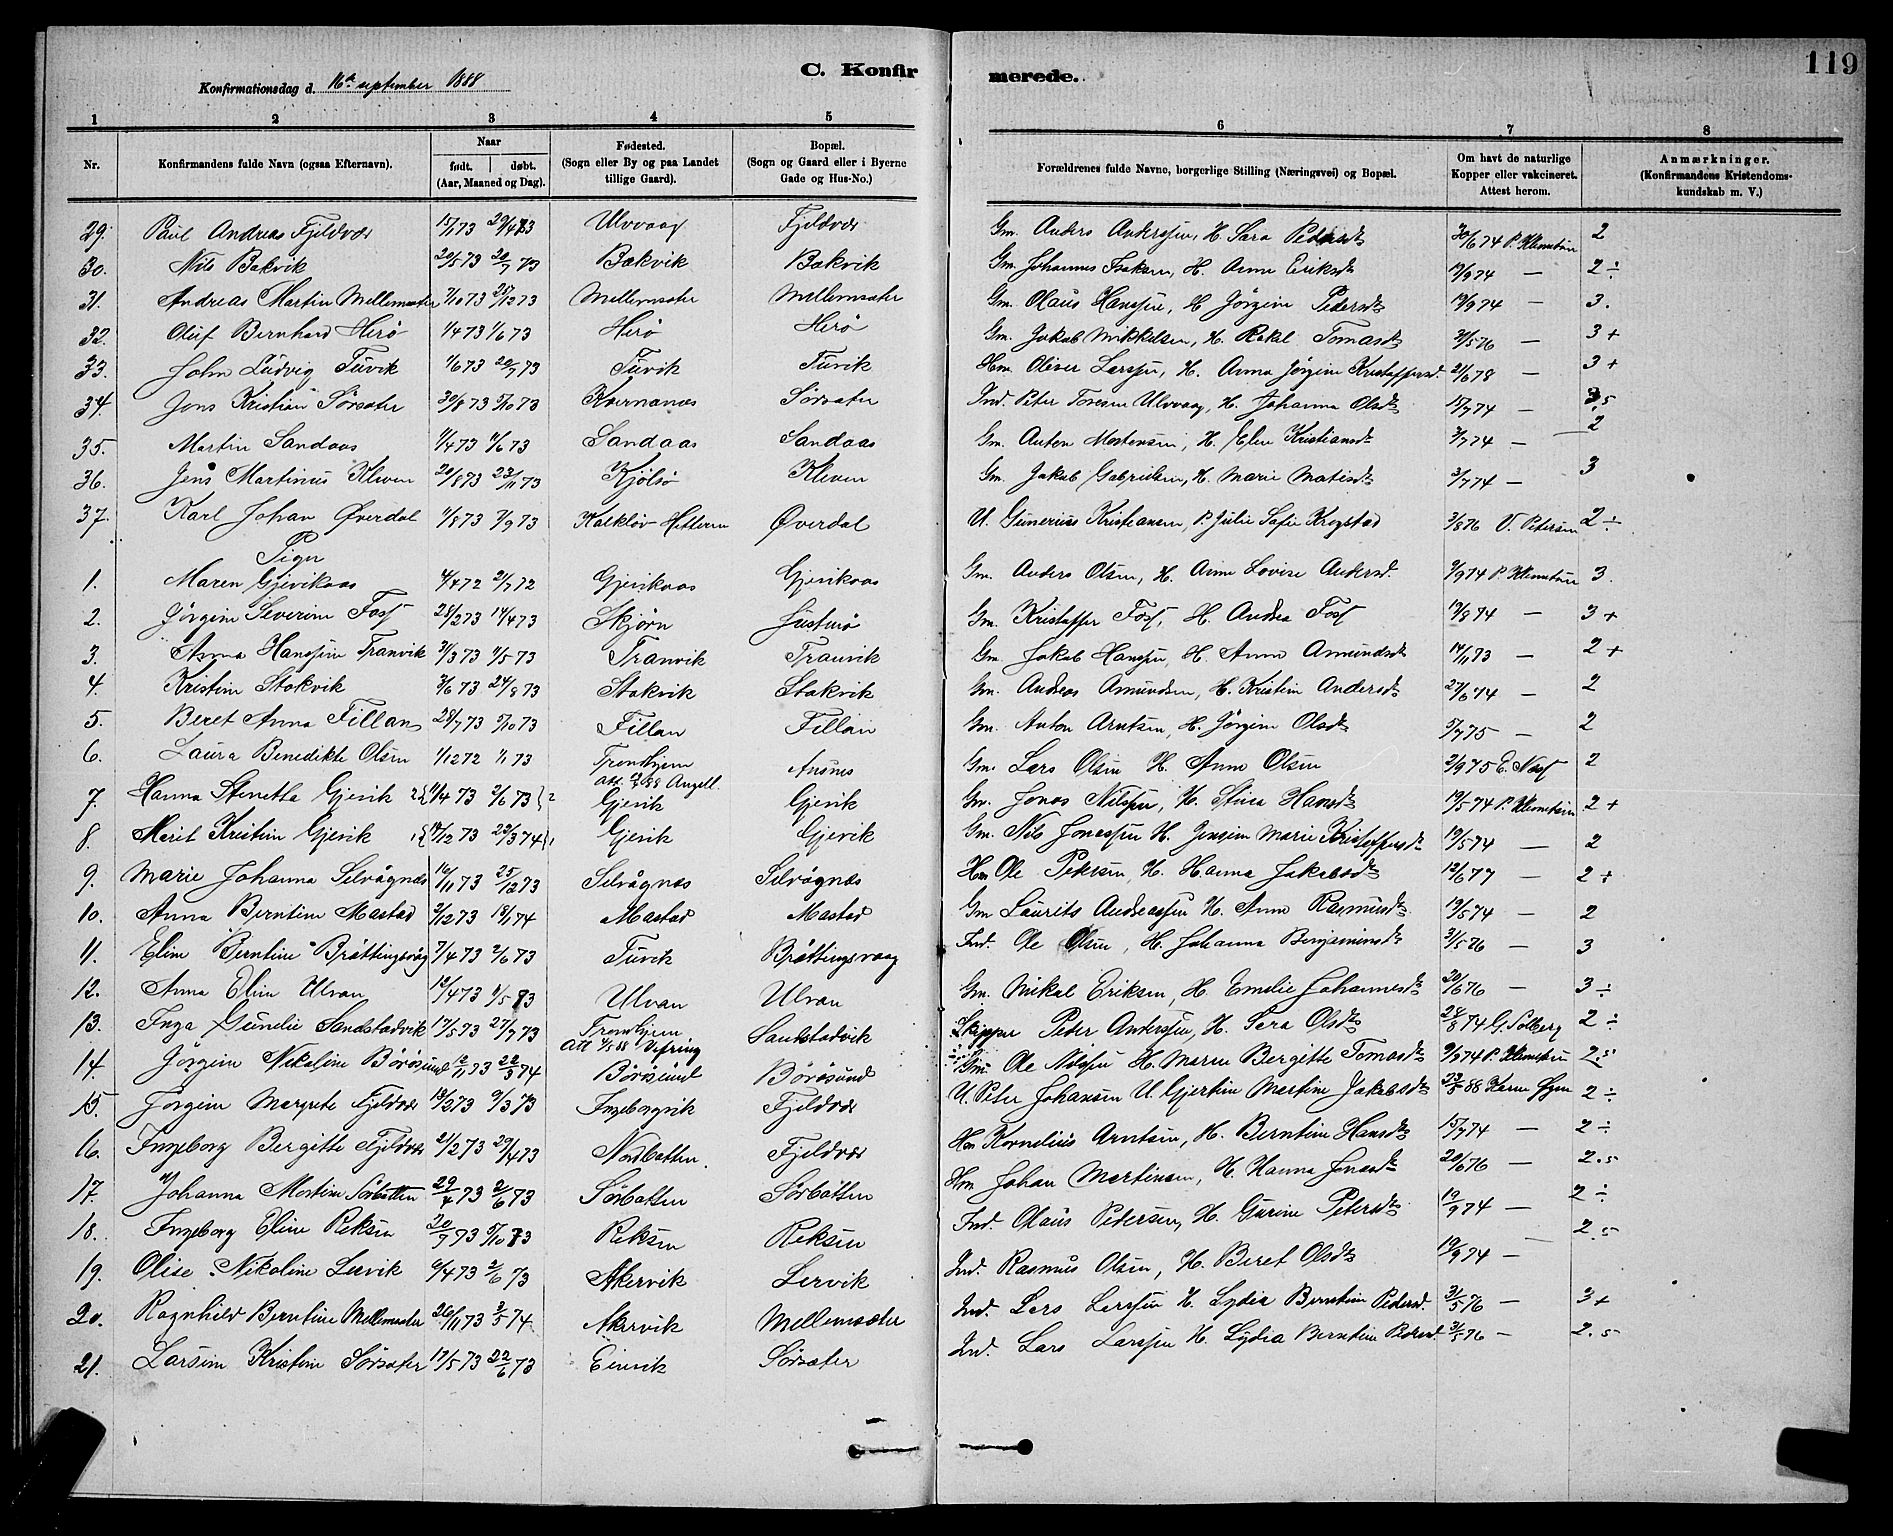 119
C. Konfirmerede.
Konfirmationsdag d. 16de september 1888
1 2 3 4 5 6 7 8
Nr. Konfirmandens fulde Navn (ogsaa Efternavn). Naar født. døbt. (Aar, Maaned og Dag). Fødested. (Sogn eller By og paa Landet tillige Gaard). Bopæl. (Sogn og Gaard eller i Byerne Gade og Hus-No.) Forældrenes fulde Navne, borgerlige Stilling (Næringsvei) og Bopæl. Om havt de naturlige Kopper eller vakcineret. Attest herom. Anmærkninger. (Konfirmandens Kristendomskundskab m. V.)
29. Paul Andreas Fjeldvær 15/1 73 29/4 73 Ulvvaag Fjeldvær Gm. Anders Anderssen, H. Sara Pedersdt 30/6 74 P. Klemetsen 2
30. Nils Bakvik 20/5 73 20/7 73 Bakvik Bakvik Gm. Johannes Isaksen, H. Anne Eriksdt 19/9 74 — 2 ÷
31. Andreas Martin Mellemsæter 7/10 73 25/12 73 Mellemsæter Mellemsæter Gm. Olaus Hanssen, H. Jörgine Pedersdt 19/9 74 — 3.
32. Oluf Bernhard Herö 1/4 73 1/6 73 Herö Herö Gm. Jakob Mikkelsen, H. Rakel Tomasdt 31/5 76 — 3 +
33. John Ludvig Tuvik 1/6 73 20/7 73 Tuvik Tuvik Hm. Oliver Larssen, H. Anna Jörgine Kristoffersd. 21/6 78 — 3 +
34. Jens Kristian Sörsæter 30/8 73 5/10 73 Kvernanes Sörsæter Ind. Peter Toresen Ulvvaag, H. Johanna Olsdt 15/7 74 — 3.5
35. Martin Sandaas 1/4 73 1/6 73 Sandaas Sandaas Gm. Anton Mortensen, H. Elen Kristiansdt 3/7 74 — 2
36. Jens Martinus Kleven 20/8 73 23/11 73 Kjölsö Kleven Gm. Jakob Gabrielsen, H. Marie Matisdt 3/7 74 — 3
37. Karl Johan Øverdal 1/8 73 7/9 73 Kalklöv Hitteren Øverdal U. Gunerius Kristiansen, P. Julie Sofie Krogstad 3/8 76 V. Petersen 2 ÷
Piger
1. Maren Gjevikaas 4/4 72 21/7 72 Gjevikaas Gjevikaas Gm. Anders Olsen, H. Anne Lovise Andersd. 9/9 74 P. Klemetsen 3.
2. Jörgine Severine Foss 28/2 73 14/4 73 Skjörn Gm. Kristoffer Foss, H. Andrea Foss 13/8 74 — 3 +
3. Anna Hanssine Tranvik 31/3 73 1/5 73 Tranvik Tranvik Gm. Jakob Hanssen, H. Anne Amundsdt 14/11 73 — 2 +
4. Kristine Stokvik 3/6 73 24/8 73 Stokvik Stokvik Gm. Andreas Amundsen, H. Kristine Andersdt 27/6 74 — 2
5. Beret Anna Fillan 28/7 73 5/10 73 Fillan Fillan Gm. Anton Arntsen, H. Jörgine Olsdt 5/7 75 — 2
6. Laura Benedikte Olsen 1/12 72 1/1 73 Trondhjem Att. 88 Angell. Ansnes Gm. Lars Olsen H. Anne Olsen 2/9 75 2
7. Hanna Stenetta Gjevik 2 { 11/4 73 2/6 73 } 2 Gjevik Gjevik Gm. Jonas Nilssen, H. Stina Hansdt 19/5 74 P. Klemetsen 2 +
8. Meret Kristine Gjevik 1 { 14/12 73 29/3 74 } 1 Gjevik Gjevik Gm. Nils Jonassen H. Jensine Marie Kristoffersdt 19/5 74 — 2
9. Marie Johanna Selvågnes 16/11 73 25/12 73 Selvågnes Selvågnes Hm. Ole Petersen, H. Hanna Jakobsdt 12/6 77 — 2 +
10. Anna Berntine Mastad 2/12 73 18/1 74 Mastad Mastad Gm. Laurits Andreassen H. Anne Rasmusdt 19/5 74 — 2
11. Eline Berntine Bråttingsvåg 7/4 73 2/6 73 Tuvik Bråttingsvaag Ind. Ole Olsen, H. Johanna Benjaminsdt 31/5 76 — 3
12. Anna Eline Ulvan 12/4 73 1/5 73 Ulvan Ulvan Gm. Mikal Eriksen, H. Emelie Johannesdt 20/6 76 — 3 ÷
13. Inga Gunelie Sandstadvik 17/5 73 27/7 73 Trondhjem Att 4/5 88 Vefring Sandstadvik Skipper Peder Anderssen, H. Sara Olsdt 28/8 74 G. Solberg 2 ÷
14. Jörgine Nikoline Börösund 12/11 73 22/3 74 Börösund Börösund Gm. Ole Nilssen H. Maren Bergitte Tomasdt 9/9 74 P. Klemetsen 2.5
15. Jörgine Margrete Fjeldvær 13/2 73 9/3 73 Ingeborgvik Fjeldvær U. Peter Johansen U. Gjertine Martine Jakobsdt 23/5 88 Karen 2 ÷
16. Ingeborg Bergitte Fjeldvær 21/2 73 29/4 73 Nordbotten Fjeldvær Hm Kornelius Arntsen, H. Berntine Hansdt 15/7 74 — 2 ÷
17. Johanna Mostine Sörbotten 29/4 73 2/6 73 Sörbotten Sörbotten Hm Johan Martinsen, H. Hanna Jonasdt 20/6 76 — 2.5
18. Ingeborg Eline Reksen 20/7 73 5/10 73 Reksen Reksen Ind. Olaus Pedersen, H. Gurine Petersdt 19/9 74 — 2 ÷
19. Olise Nikoline Lervik 9/4 73 2/6 73 Akervik Lervik Ind. Rasmus Olsen, H. Beret Olsdt 19/9 74 — 2.5
20. Ragnhild Berntine Mellemsæter 26/11 73 3/5 74. Akervik Mellemsæter Ind. Lars Larssen H. Lydia Berntine Pedersd. 31/5 76 — 3 +
21. Larsine Kristine Sörsæter 17/5 73 22/6 73 Einvik Sörsæter Ind. Lars Larssen H. Lydia Berntine Pedersd. 31/5 76 — 2.5